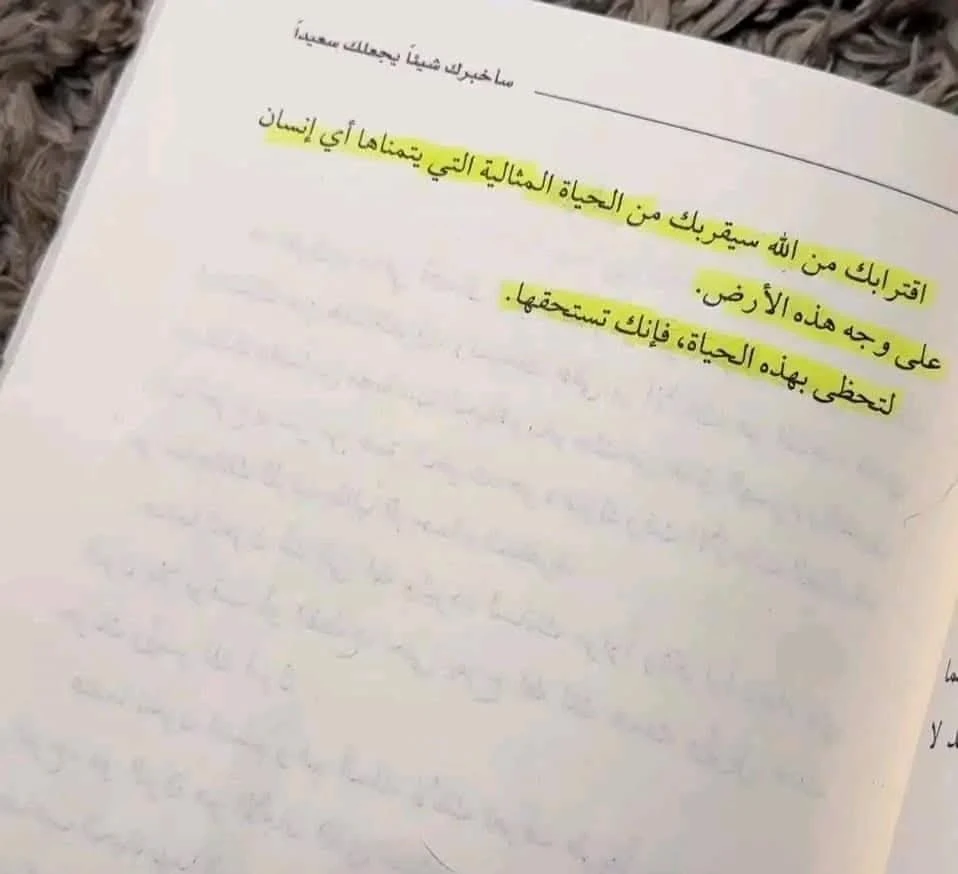 سأخبرك شيئاً يجعلك سعيداً
اقترابك من الله سيقربك من الحياة المثالية التي يتمناها أي إنسان
على وجه هذه الأرض.
لتحظى بهذه الحياة، فإنك تستحقها.
لا